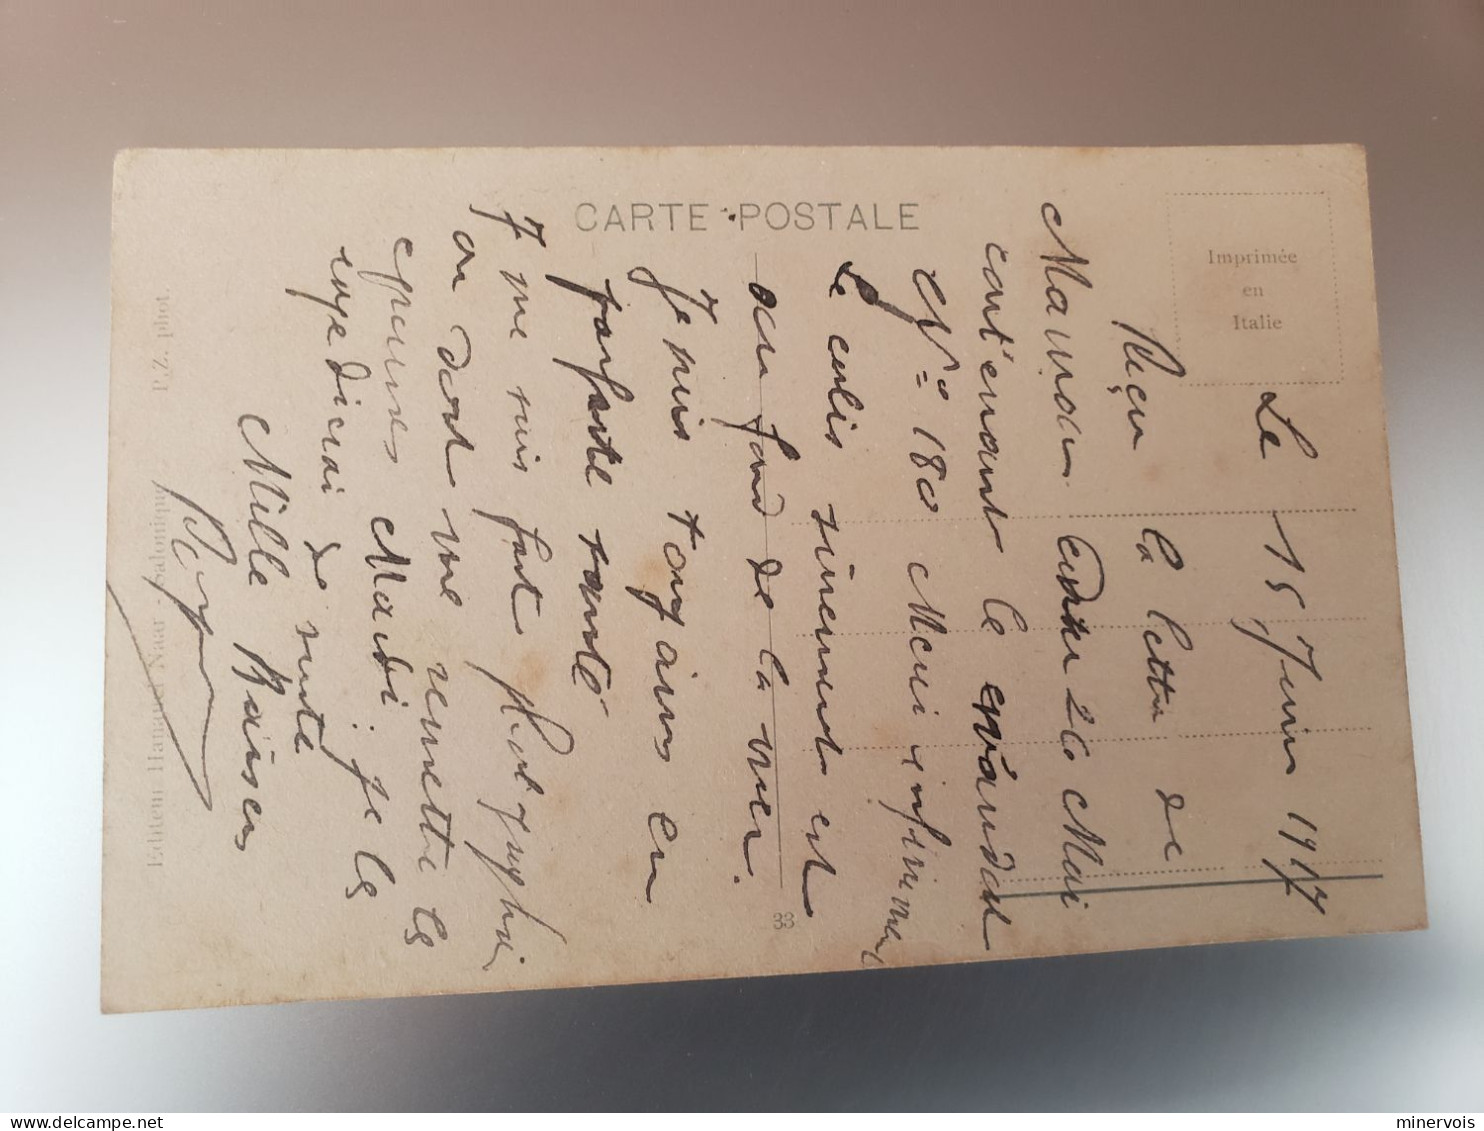 CARTE POSTALE
Imprimée
en
Italie
Le 15 Juin 1917
Reçu la lettre de
Maman du 26 Mai
contenant le mandat
n° 180 Merci infiniment
Le colis sûrement est
au fond de la mer.
Je suis toujours en
parfaite santé
Je me suis fait photographié
on doit me remettre les
épreuves Mardi. je les
expédierai de suite
Mille Baisers
33
Editeurs Hananel Naar - Salonique P. Z. phot.
minervois